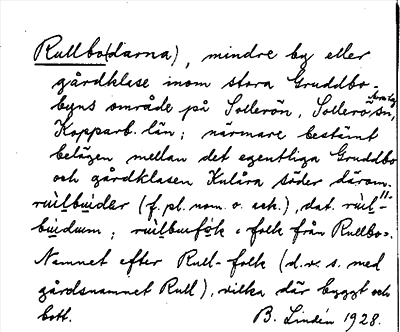 Rullbo(darna), mindre by eller
gårdklase inom stora Gruddbo
byns område på Sollerön, Sollerö sn,
Kopparb. län; närmare bestämt
belägen mellan det egentliga Gruddbo
och gårdklasen Kulåra söder därom.
(f. pl. nom. o. ack.), dat.
folk från Rullbo =.
Namnet efter Rull-folk (d.v.s. med
gårdsnamnet Rull), vilka där byggt och
bott. B. Lindén 1928.